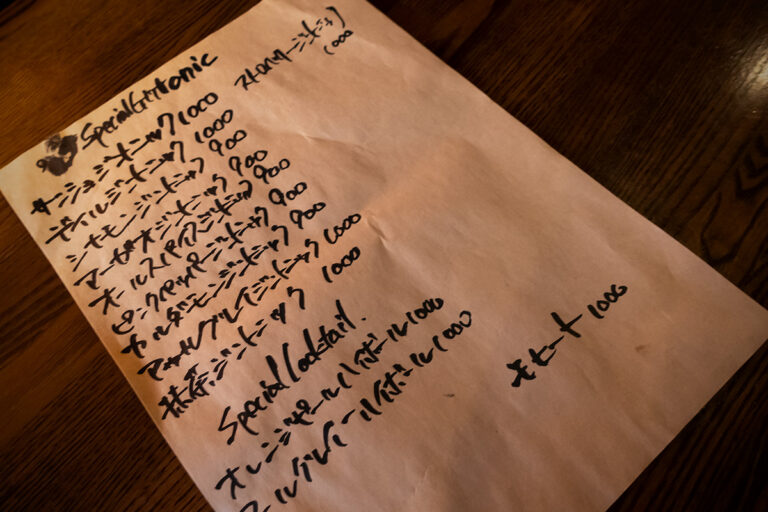 Special Gin tonic
ストロベリージントニック
1000
サンショジントニック 1000
ディルジントニック 1000
シナモンジントニック 900
マーガオジントニック 900
オールスパイスジントニック 900
ピンクペッパージントニック 900
カルダモンジントニック 900
アールグレイジントニック 1000
抹茶ジントニック 1000
Special Cocktail.
オレンジピールハイボール 1000
アールグレイハイボール 1000
モヒート 1000